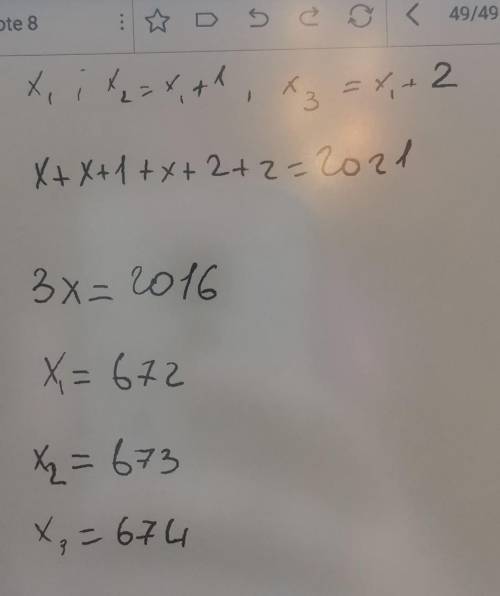 ote 8
49/49
x₁ ; x₂ = x₁ + 1, x₃ = x₁ + 2
x + x + 1 + x + 2 + 2 = 2021
3x = 2016
x₁ = 672
x₂ = 673
x₃ = 674